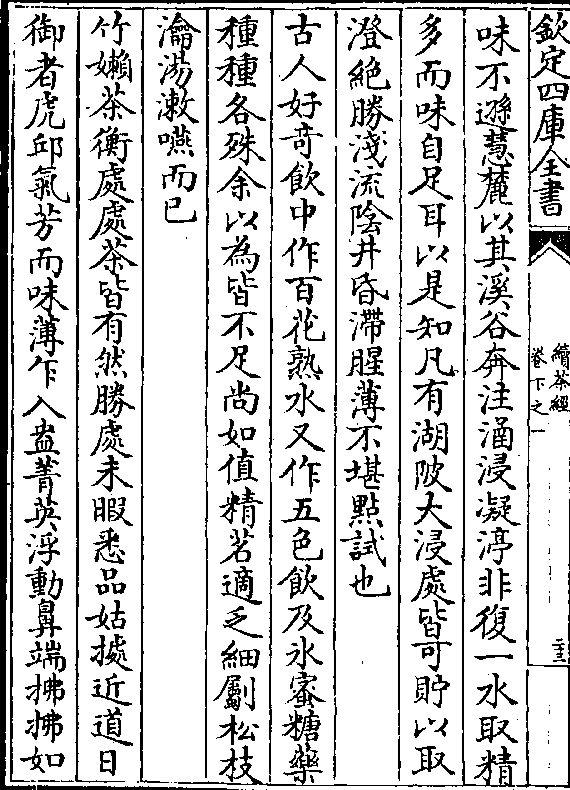 欽定四庫全書
續茶經
卷下之一
二十三
味不遜慧麓以其溪谷奔注涵浸凝渟非復一水取精
多而味自足耳以是知凡有湖陂大浸處皆可貯以取
澄絶勝淺流陰井昏滯腥薄不堪㸃試也
古人好奇飲中作百花熟水又作五色飲及氷蜜糖藥
種種各殊余以為皆不足尚如值精茗適乏細劚松枝
瀹湯漱嚥而已
竹嬾茶衡處處茶皆有然勝處未暇悉品姑據近道日
御者虎邱氣芳而味薄乍入盎菁英浮動鼻端拂拂如